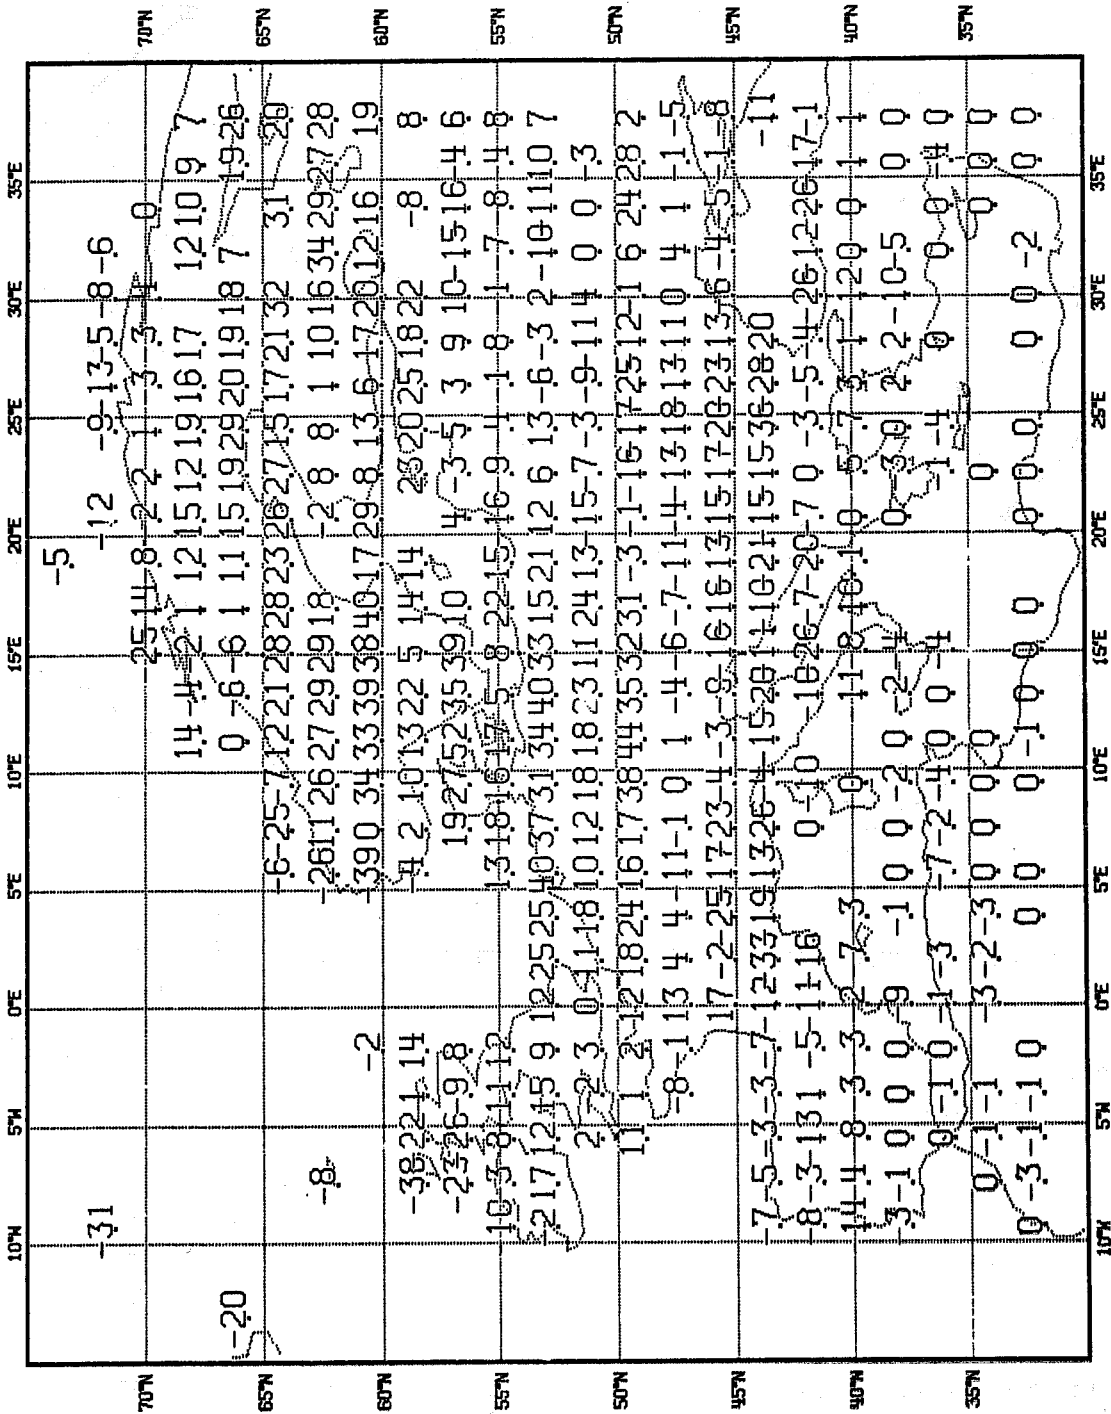 10°W 5°W 0°E 5°E 10°E 15°E 20°E 25°E 30°E 35°E
-5
-31 -12 -9 -13 -5 -8 -6
70°N 25 14 8 -2 2 1 -3 -3 1 0 70°N
14 -4 -2 1 12 15 12 19 16 17 12 10 9 7
-20 0 -6 -6 1 11 15 19 29 20 19 18 7 -19 26
65°N -6 -25 -7 12 21 28 28 23 26 27 15 17 21 32 31 20 65°N
-8 -26 11 26 27 29 29 18 -2 8 8 1 10 16 34 29 27 28
60°N -2 -39 0 34 33 39 38 40 17 29 8 13 6 17 20 12 16 19 60°N
-38 22 1 14 -4 2 10 13 22 5 14 14 23 20 25 18 22 -8 8
-23 26 -9 8 19 27 52 35 39 10 4 -3 -5 3 9 10 -15 16 -4 6
55°N 10 -3 8 -11 12 13 18 16 17 5 8 22 15 16 9 4 -1 8 1 7 8 4 8 55°N
-2 17 12 15 9 12 25 25 40 37 31 34 40 33 15 21 12 6 13 -6 -3 2 -10 11 10 7
2 -2 3 0 11 18 10 12 18 18 23 11 24 13 -15 -7 -3 -9 -11 14 0 0 -3
50°N 11 1 2 12 18 24 16 17 38 44 35 32 31 -3 -1 -16 17 -25 12 -1 6 24 28 2 50°N
-8 -1 13 4 4 -11 -1 0 1 -4 -6 -7 -11 -4 -13 -18 -13 11 0 4 1 -1 -5
45°N 17 -2 -25 17 -23 -4 -3 -9 -16 16 13 15 17 20 -23 13 -6 -4 -5 -1 -8 45°N
-7 -5 -3 -3 -7 -12 33 19 13 26 -4 -15 -20 -11 -10 -21 -15 -15 36 -28 -20 -11
-8 -3 -13 1 -5 -11 -16 0 -10 -18 26 -7 -20 -7 0 -3 -5 -4 -26 12 26 -17 -1
40°N 14 -4 8 3 3 -2 -7 3 0 11 8 10 -1 0 -5 -7 3 1 12 0 0 1 1 40°N
-3 -1 0 0 0 -9 -1 0 0 -2 0 -2 -4 0 -3 0 2 2 -10 -5 0 0
0 -1 0 -1 -3 -7 -2 -4 0 0 -4 -1 -4 0 0 0 -4 0
35°N 0 -1 -1 -3 -2 -3 0 0 0 0 0 0 0 35°N
0 -3 -1 -1 0 0 0 0 -1 0 0 0 0 0 0 0 0 -2 0 0
10°W 5°W 0°E 5°E 10°E 15°E 20°E 25°E 30°E 35°E